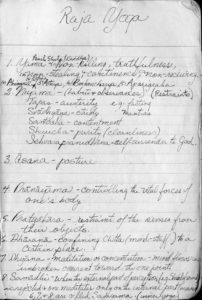 Raja Yoga
1. Yama - Non-killing, truthfulness,
non-stealing, continence, & non-receiving
2. Niyama - (habits & observances) (Restraints)
Tapas - austerity e.g. fasting
Svadhyaya - study Mantras
Santosha - contentment
Shaucha - purity (cleanliness)
Ishvarapranidhana - self-surrender to God.
3. Asana - posture
4. Pranayama - controlling the vital forces of
one's body
5. Pratyahara - restraint of the senses from
their objects.
6. Dharana - confining Chitta (mind-stuff) to a
certain place.
7. Dhyana - meditation or concentration - mind flows in
unbroken current toward the one point.
8. Samadhi - when the external part of perception
is rejected & one meditates only on the internal part
6, 7, & 8 are called Samyama